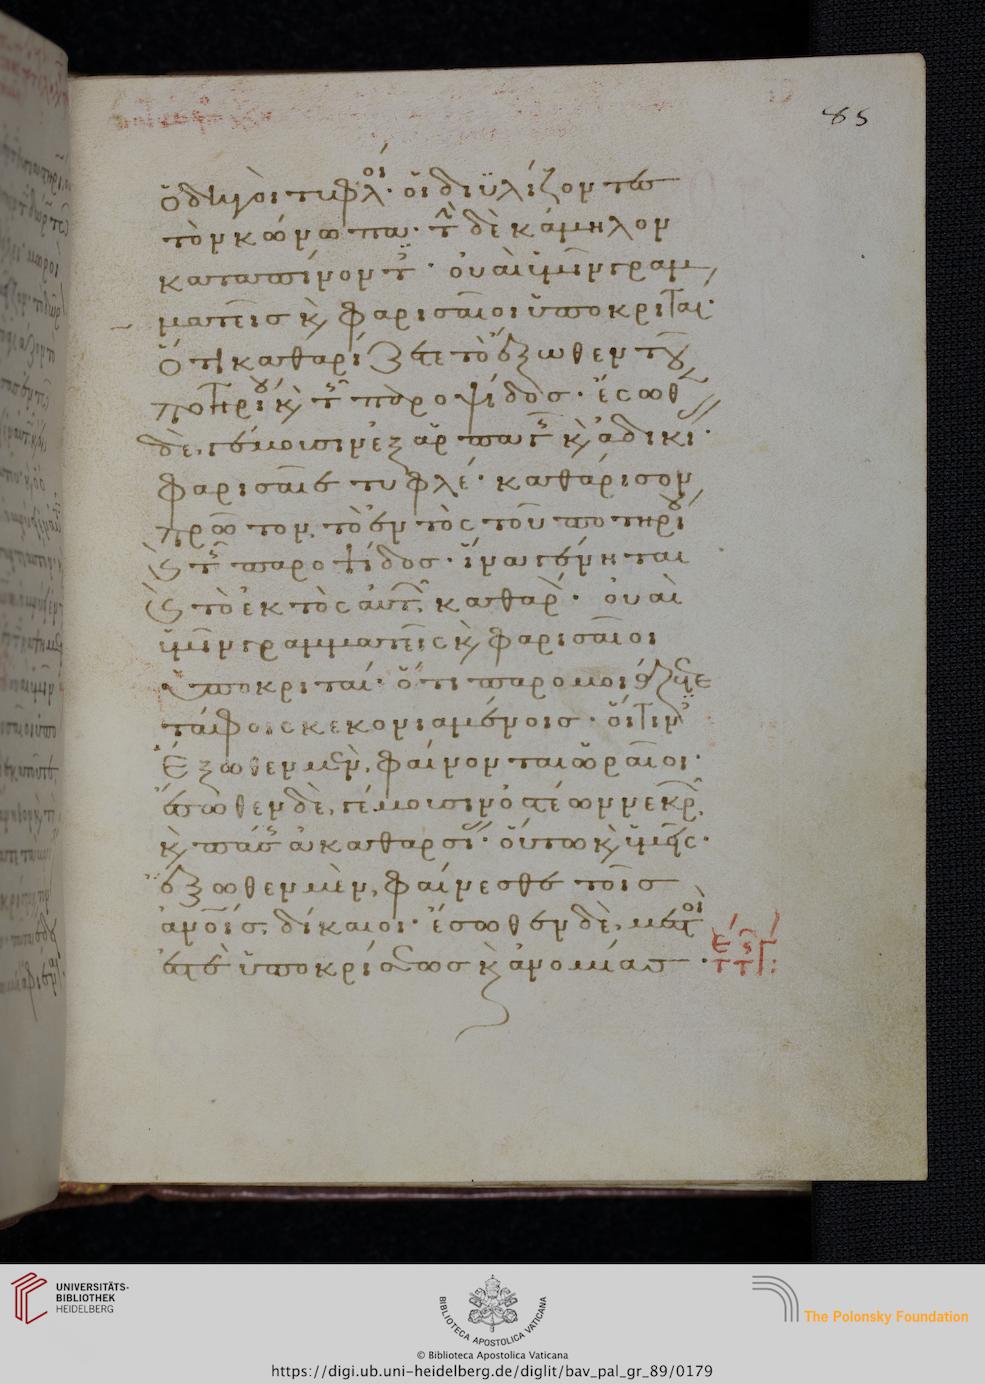 85
ὁδηγοὶ τυφλοί· οἱ διϋλίζοντες
τὸν κώνωπα· τὴν δὲ κάμηλον
καταπίνοντες· οὐαὶ ὑμῖν γραμ
ματεῖς κ φαρισαῖοι ὑποκριταί·
ὅτι καθαρίζετε τὸ ἔξωθεν τοῦ
ποτηρίου κ τῆς παροψίδος· ἔσωθεν
δὲ, γέμουσιν ἐξ ἁρπαγῆς κ ἀδικίας·
φαρισαῖε τυφλέ· καθάρισον
πρῶτον, τὸ ἐντὸς τοῦ ποτηρίου
κ τῆς παροψίδος· ἵνα γένηται
κ τὸ ἐκτὸς αὐτῶν καθαρόν· οὐαὶ
ὑμῖν γραμματεῖς κ φαρισαῖοι
ὑποκριταί· ὅτι παρομοιάζετε
τάφοις κεκονιαμένοις· οἵτινες
ἔξωθεν μὲν, φαίνονται ὡραῖοι·
ἔσωθεν δὲ, γέμουσιν ὀστέων νεκρῶν,
κ πάσης ἀκαθαρσίας· οὕτω κ ὑμεῖς·
ἔξωθεν μὲν, φαίνεσθε τοῖς
ἀνοις, δίκαιοι· ἔσωθεν δὲ, μεστοὶ
ἐστὲ ὑποκρίσεως κ ἀνομίας·
UNIVERSITÄTS-
BIBLIOTHEK
HEIDELBERG
BIBLIOTECA APOSTOLICA VATICANA
The Polonsky Foundation
© Biblioteca Apostolica Vaticana
https://digi.ub.uni-heidelberg.de/diglit/bav_pal_gr_89/0179